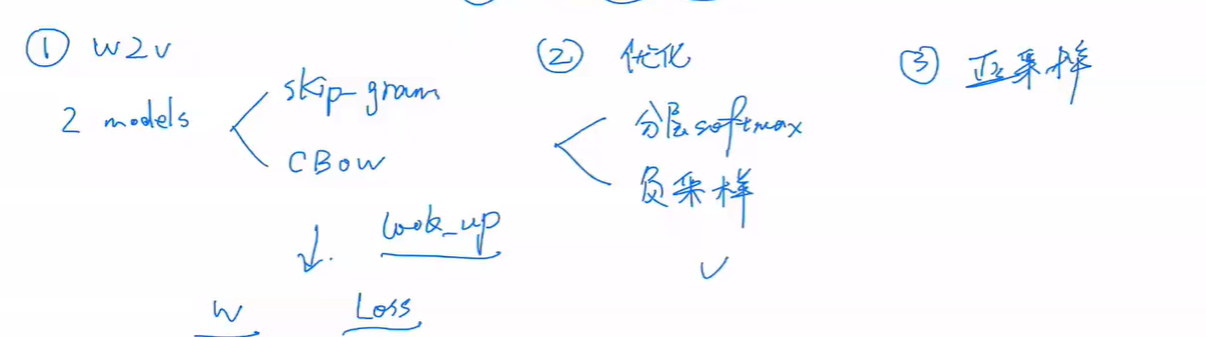 ① w2v
2 models
skip-gram
CBOW
look_up
W Loss
② 优化
分层softmax
负采样
③ 正采样